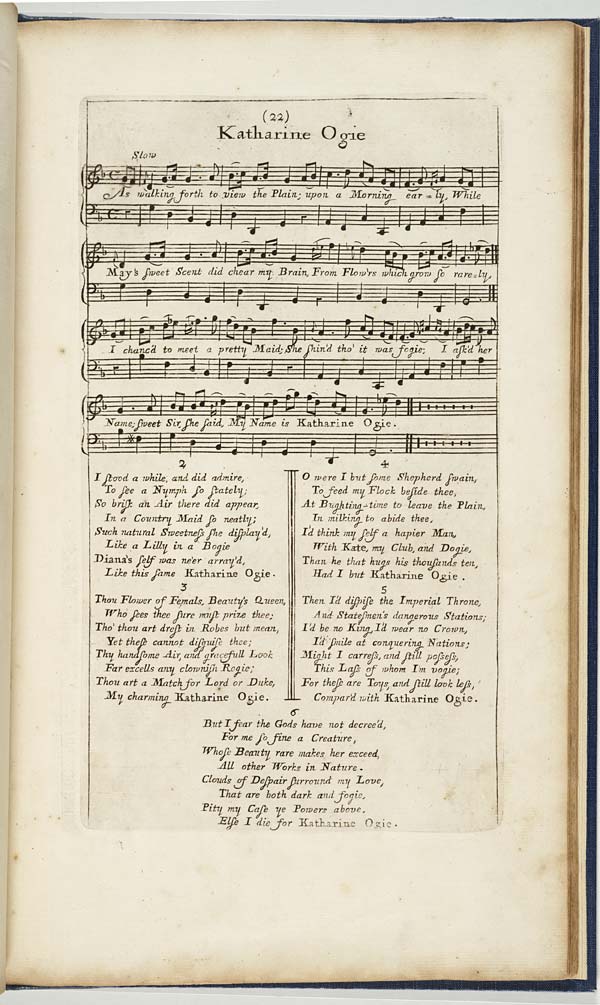 (22)
Katharine Ogie
Slow
As walking forth to view the Plain; upon a Morning ear=ly, While
May's ſweet Scent did chear my Brain, From Flow'rs which grow ſo rare=ly,
I chanc'd to meet a pretty Maid; She ſhin'd tho' it was fogie; I aſk'd her
Name; ſweet Sir, ſhe ſaid, My Name is Katharine Ogie.
2
I ſtood a while, and did admire,
To ſee a Nymph ſo ſtately;
So briſk an Air there did appear,
In a Country Maid ſo neatly;
Such natural Sweetneſs ſhe diſplay'd,
Like a Lilly in a Bogie
Diana's ſelf was ne'er array'd,
Like this ſame Katharine Ogie.
3
Thou Flower of Femals, Beauty's Queen,
Who ſees thee ſure muſt prize thee;
Tho' thou art dreſt in Robes but mean,
Yet theſe cannot diſguiſe thee;
Thy handſome Air, and gracefull Look
Far excells any clowniſh Rogie;
Thou art a Match for Lord or Duke,
My charming Katharine Ogie.
4
O were I but ſome Shepherd ſwain,
To feed my Flock beſide thee,
At Bughting=time to leave the Plain,
In milking to abide thee,
I'd think my ſelf a hapier Man,
With Kate, my Club, and Dogie,
Than he that hugs his thouſands ten,
Had I but Katharine Ogie.
5
Then I'd diſpiſe the Imperial Throne,
And Stateſmen's dangerous Stations;
I'd be no King, I'd wear no Crown,
I'd ſmile at conquering Nations;
Might I carreſs, and ſtill poſseſs,
This Laſs of whom I'm vogie;
For theſe are Toys, and ſtill look leſs,
Compar'd with Katharine Ogie.
6
But I fear the Gods have not decree'd,
For me ſo fine a Creature,
Whoſe Beauty rare makes her exceed,
All other Works in Nature.
Clouds of Deſpair ſurround my Love,
That are both dark and fogie,
Pity my Caſe ye Powers above,
Elſe I die for Katharine Ogie.